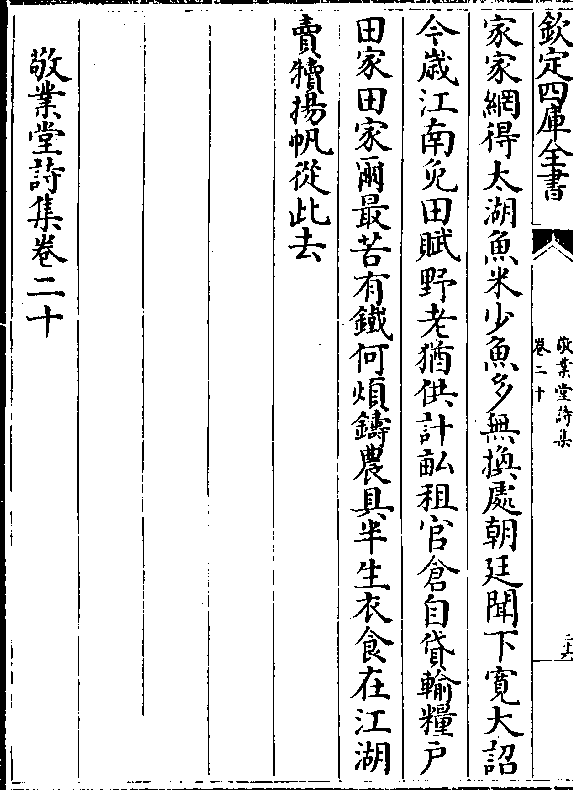 欽定四庫全書
敬業堂詩集
卷二十
家家網得太湖魚米少魚多無換處朝廷聞下寛大詔
今歳江南免田賦野老猶供計畆租官倉自貸輸糧户
田家田家爾最苦有鐵何煩鑄農具半生衣食在江湖
賣犢揚帆從此去
敬業堂詩集卷二十